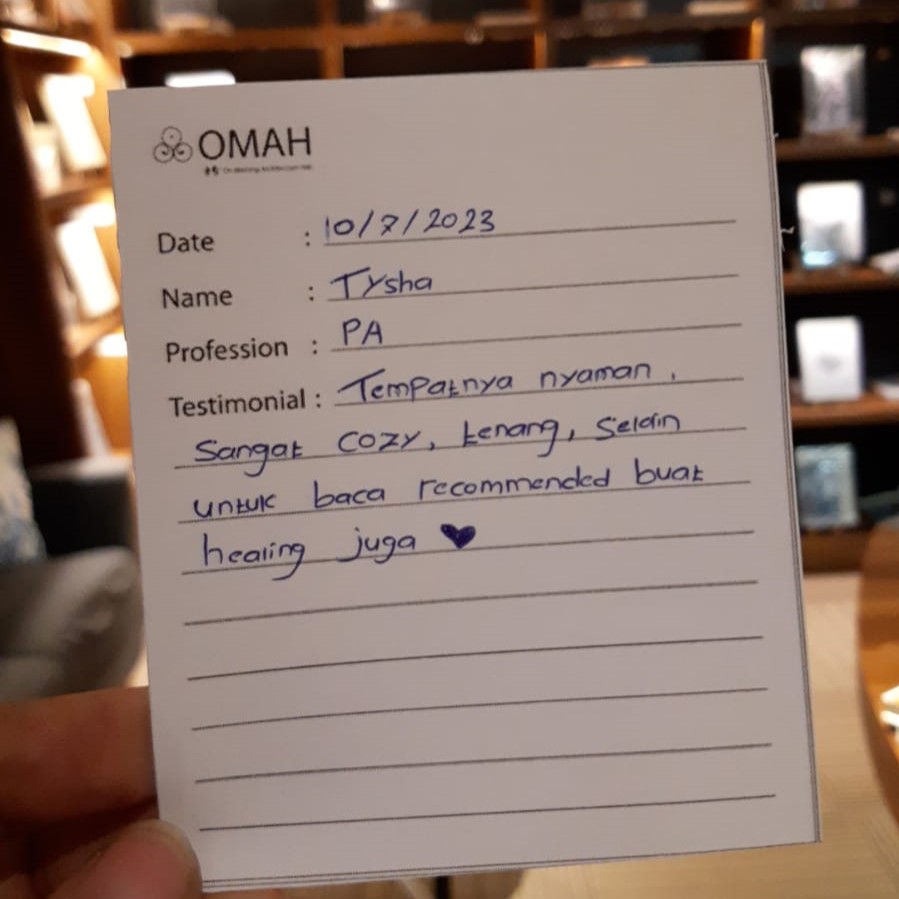 OMAH
Date : 10/7/2023
Name : Tysha
Profession : PA
Testimonial : Tempatnya nyaman,
Sangat cozy, tenang, Selain
untuk baca recommended buat
healing juga